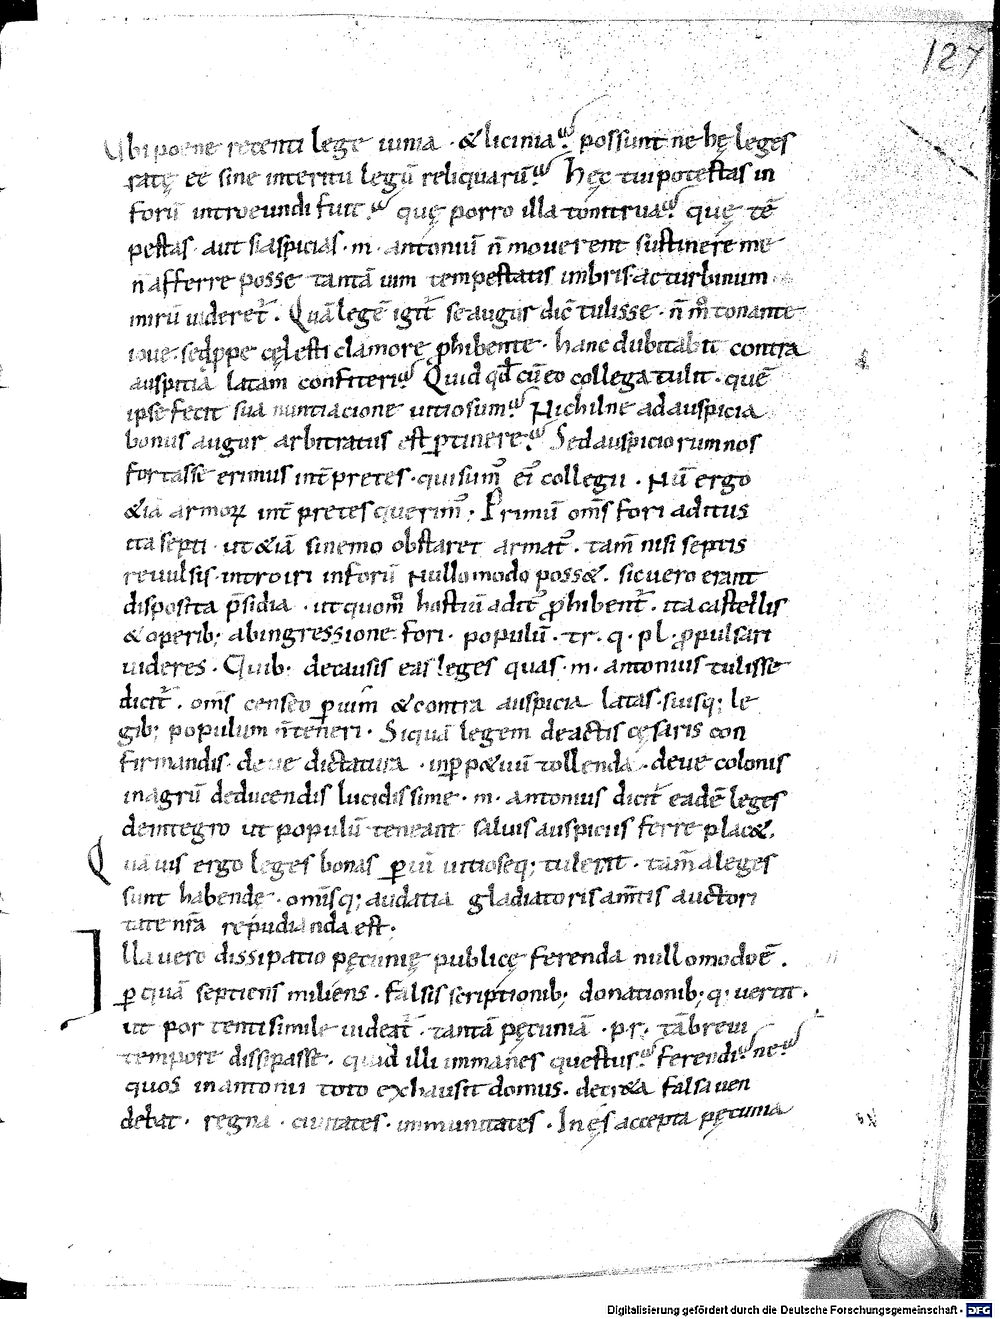 127
Ubi poene retenti lege iunia · & licinia? possunt ne hę leges
ratę eē sine interitu legū reliquarū? Hęc tui potestas in
forū introeundi fuit? quę porro illa tonitrua? quę tē
pestas · aut si aspicias · m · antoniū n̄ mouerent sustinere me
n̄ afferre posse tantā uim tempestatis imbris ac turbinum
mirū uideret᷑. Quā legē igit᷑ se augur dic̄ tulisse · n̄ m̊ tonante
ioue · sed ꝓpe cęlesti clamore ꝓhibente · hanc dubitabit contra
auspitia latam confiteri? Quid qđ cū eo collega tulit · quē
ipse fecit sua nuntiacione uitiosum? Nichilne ad auspicia
bonus augur arbitratus est ꝑtinere? Sed auspiciorum nos
fortasse erimus int̄pretes · qui sum᷒ ei᷒ collegii · Nū ergo
&iā armoꝝ int̄pretes querim᷒; Primū om̄s fori aditus
ita septi · ut &iā si nemo obstaret armat᷒. tam̄ nisi septis
reuulsis · introiri in forū nullo modo poss&. sic uero erant
disposita p̄sidia · ut quom̊ hostiū adit᷒ ꝓhibent᷑. ita castellis
& operib; ab ingressione fori · populū · tr · q · pl · ꝓpulsari
uideres · Quib; de causis eas leges quas · m · antonius tulisse
dicit᷑. om̄s censeo ꝑ uim & contra auspicia latas · suisq; le
gib; populum n̄ teneri · Si quā legem de actis cęsaris con
firmandis · de ue dictatura · in ꝑp&uū tollenda · deue colonis
in agrū deducendis lucidissime · m · antonius dicit᷑ eadē leges
de integro ut populū teneant saluis auspiciis ferre plac&.
Quāuis ergo leges bonas ꝑ uī uitioseq; tulerit · tam̄ a leges
sunt habende · om̄isq; audatia gladiatoris am̄tis auctori
tate nr̄a repudianda est ·
Illa uero dissipatio pęcunię publicę ferenda nullo modo ē.
ꝑ quā septiens miliens · falsis scriptionib; donationib; q; uertit ·
ut portenti simile uideat᷑ · tantā pęcuniā · p · r · tā breui
tempore dissipasse · quid illi immanes questus? ferendi? ne?
quos in antonii toto exhausit domus. decr&a falsa uen
debat · regna · ciuitates · immunitates · In ęs accepta pęcunia
Digitalisierung gefördert durch die Deutsche Forschungsgemeinschaft - DFG